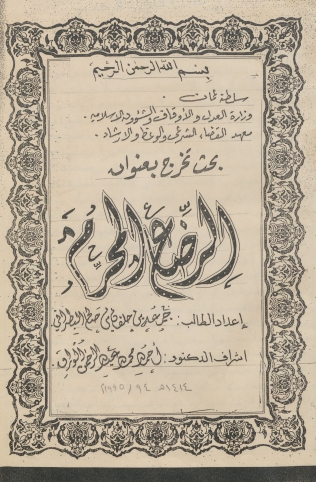 بسم الله الرحمن الرحيم
سلطنة عمان
وزارة العدل والأوقاف والشؤون الإسلامية
معهد القضاء الشرعي والوعظ والإرشاد
بحث تخرج بعنوان
الرضاع المحرم
إعداد الطالب: خلفان
اشراف الدكتور: أحمد محمد عبد الرحمن
١٤١٤هـ ٩٤ / ١٩٩٥م